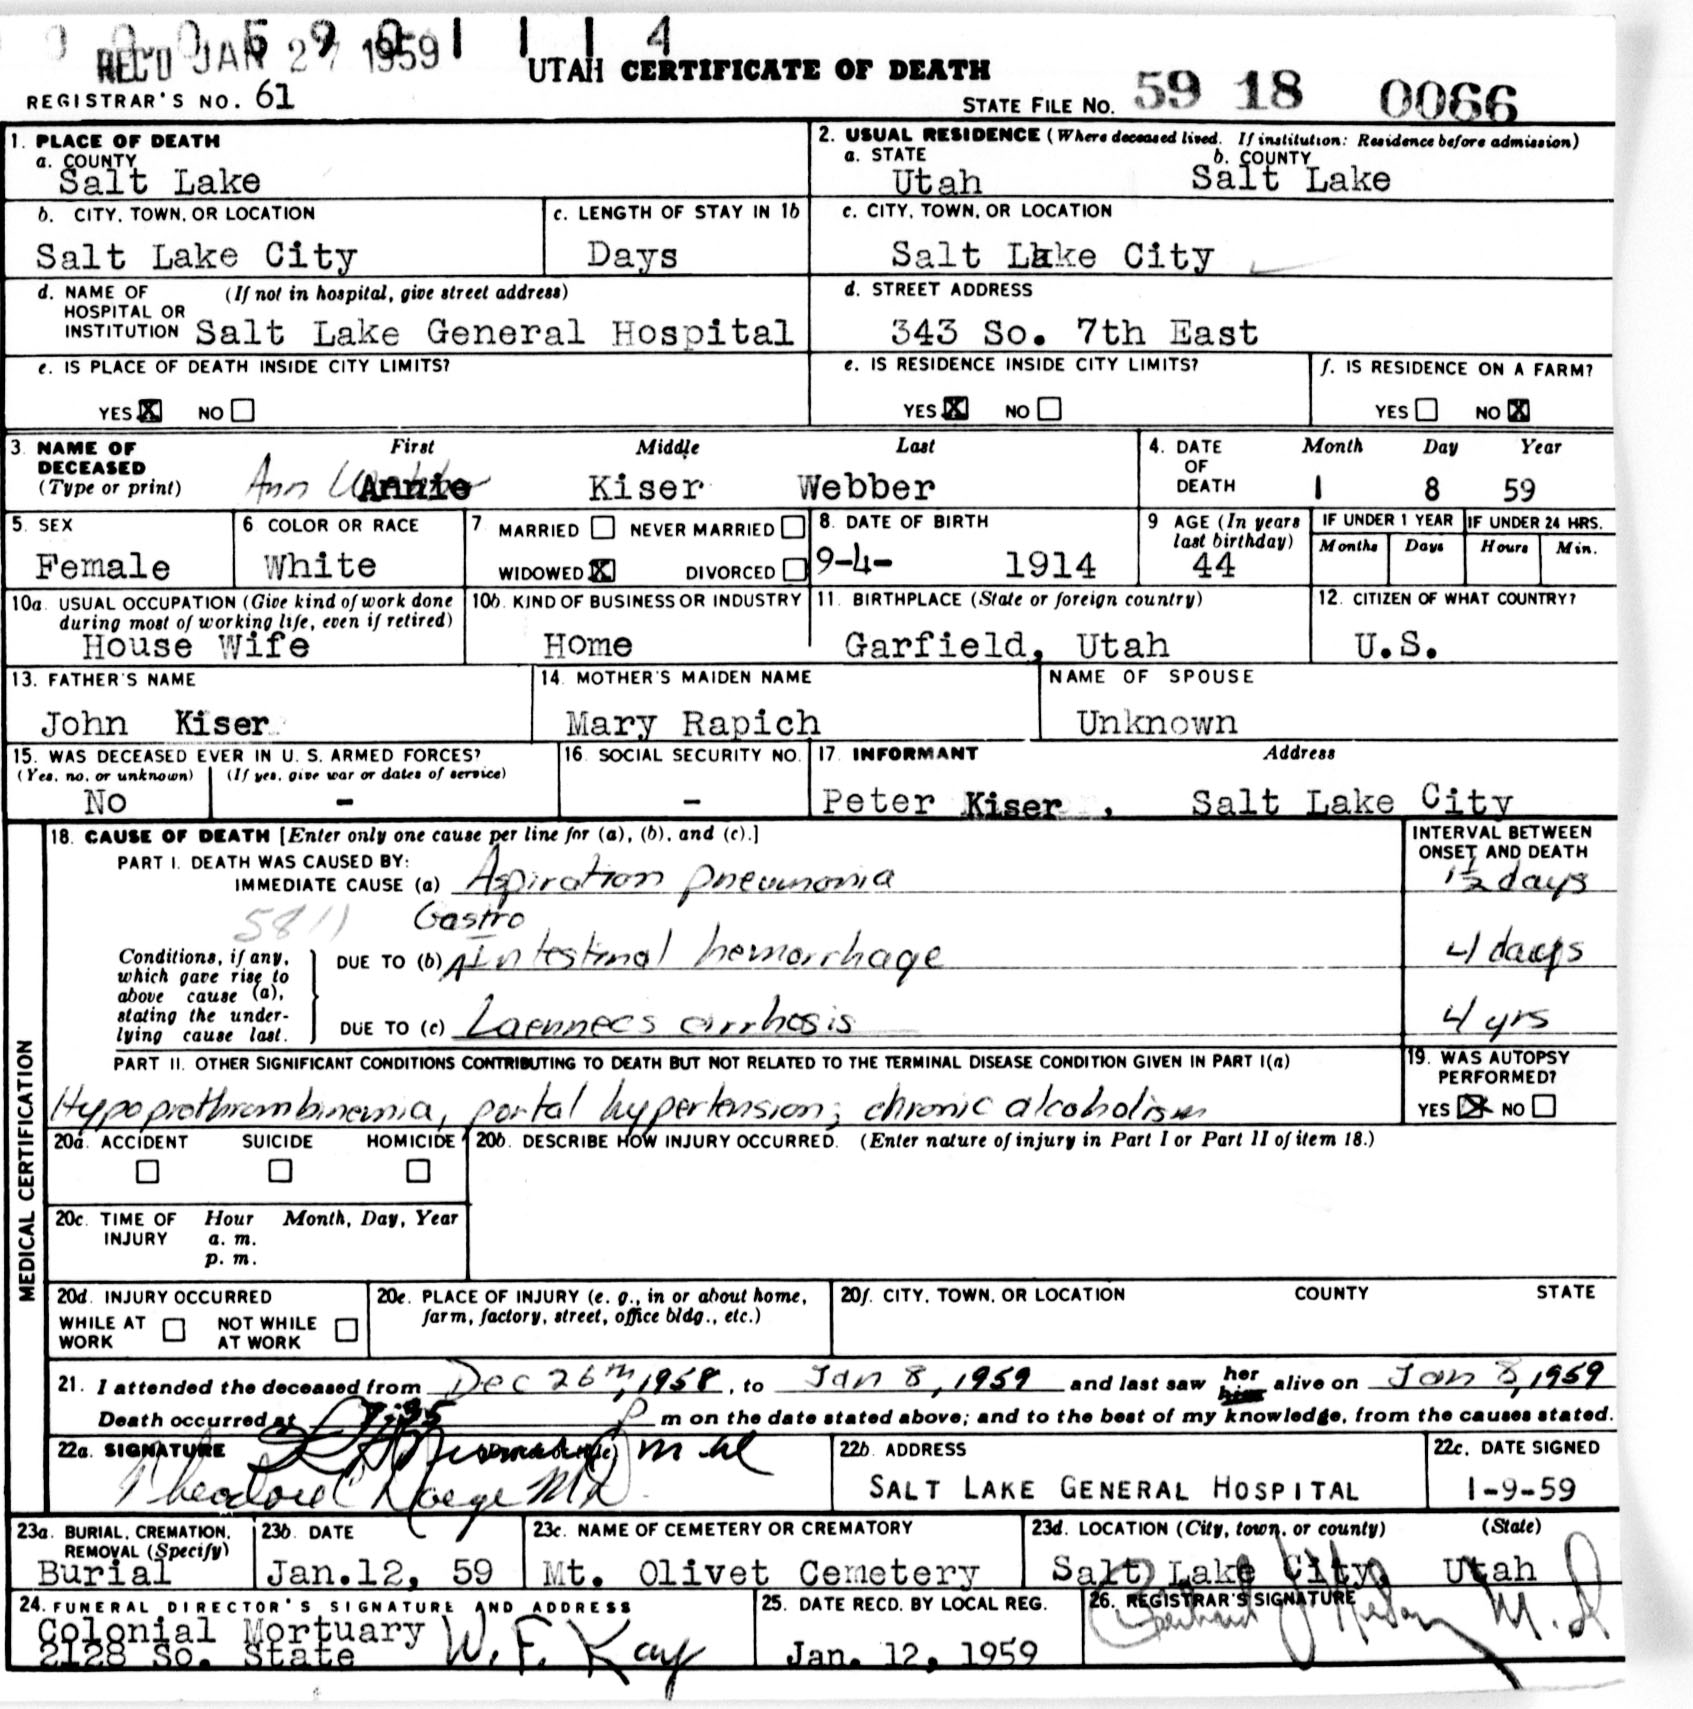 0 0 0 5 9 0 1 1 1 4
REC'D JAN 27 1959
UTAH CERTIFICATE OF DEATH
REGISTRAR'S NO. 61
STATE FILE NO. 59 18 0066
1. PLACE OF DEATH
a. COUNTY
Salt Lake
2. USUAL RESIDENCE (Where deceased lived. If institution: Residence before admission)
a. STATE b. COUNTY
Utah Salt Lake
b. CITY, TOWN, OR LOCATION
Salt Lake City
c. LENGTH OF STAY IN 1b
Days
c. CITY, TOWN, OR LOCATION
Salt Lake City
d. NAME OF (If not in hospital, give street address)
HOSPITAL OR
INSTITUTION Salt Lake General Hospital
d. STREET ADDRESS
343 So. 7th East
e. IS PLACE OF DEATH INSIDE CITY LIMITS?
YES X NO
e. IS RESIDENCE INSIDE CITY LIMITS?
YES X NO
f. IS RESIDENCE ON A FARM?
YES NO X
3. NAME OF DECEASED First Middle Last
(Type or print) Ann Annie Kiser Webber
4. DATE OF DEATH Month Day Year
1 8 59
5. SEX
Female
6 COLOR OR RACE
White
7 MARRIED NEVER MARRIED
WIDOWED X DIVORCED
8. DATE OF BIRTH
9-4- 1914
9 AGE (In years last birthday)
44
IF UNDER 1 YEAR IF UNDER 24 HRS.
Months Days Hours Min.
10a. USUAL OCCUPATION (Give kind of work done
during most of working life, even if retired)
House Wife
10b. KIND OF BUSINESS OR INDUSTRY
Home
11. BIRTHPLACE (State or foreign country)
Garfield, Utah
12. CITIZEN OF WHAT COUNTRY?
U.S.
13. FATHER'S NAME
John Kiser
14. MOTHER'S MAIDEN NAME
Mary Rapich
NAME OF SPOUSE
Unknown
15. WAS DECEASED EVER IN U. S. ARMED FORCES?
(Yes, no, or unknown) (If yes, give war or dates of service)
No -
16. SOCIAL SECURITY NO.
-
17. INFORMANT Address
Peter Kiser, Salt Lake City
MEDICAL CERTIFICATION
18. CAUSE OF DEATH [Enter only one cause per line for (a), (b), and (c).]
INTERVAL BETWEEN
ONSET AND DEATH
PART I. DEATH WAS CAUSED BY:
IMMEDIATE CAUSE (a) Aspiration pneumonia 1½ days
5811
Gastro
Conditions, if any,
which gave rise to
above cause (a),
stating the under-
lying cause last.
DUE TO (b) Intestinal hemorrhage 4 days
DUE TO (c) Laennecs cirrhosis 4 yrs
PART II. OTHER SIGNIFICANT CONDITIONS CONTRIBUTING TO DEATH BUT NOT RELATED TO THE TERMINAL DISEASE CONDITION GIVEN IN PART I(a)
Hypoprothrombinemia, portal hypertension; chronic alcoholism
19. WAS AUTOPSY
PERFORMED?
YES X NO
20a. ACCIDENT SUICIDE HOMICIDE
20b. DESCRIBE HOW INJURY OCCURRED. (Enter nature of injury in Part I or Part II of item 18.)
20c. TIME OF INJURY Hour Month, Day, Year
a. m.
p. m.
20d. INJURY OCCURRED
WHILE AT WORK NOT WHILE AT WORK
20e. PLACE OF INJURY (e. g., in or about home,
farm, factory, street, office bldg., etc.)
20f. CITY, TOWN, OR LOCATION COUNTY STATE
21. I attended the deceased from Dec 26th, 1958, to Jan 8, 1959 and last saw her him alive on Jan 8, 1959
Death occurred at 7:35 P m on the date stated above; and to the best of my knowledge, from the causes stated.
22a. SIGNATURE
Theodore C M.D.
22b. ADDRESS
SALT LAKE GENERAL HOSPITAL
22c. DATE SIGNED
1-9-59
23a. BURIAL, CREMATION,
REMOVAL (Specify)
Burial
23b. DATE
Jan.12, 59
23c. NAME OF CEMETERY OR CREMATORY
Mt. Olivet Cemetery
23d. LOCATION (City, town, or county) (State)
Salt Lake City, Utah
24. FUNERAL DIRECTOR'S SIGNATURE AND ADDRESS
Colonial Mortuary
2128 So. State W. F. Kay
25. DATE RECD. BY LOCAL REG.
Jan. 12, 1959
26. REGISTRAR'S SIGNATURE
M.D